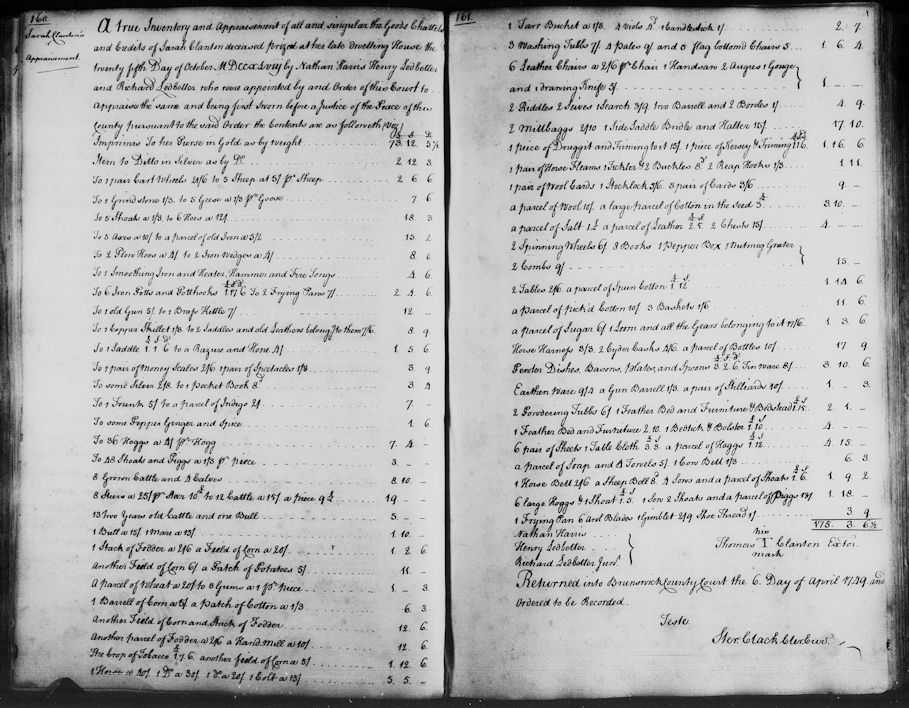 160.
Sarah Clanton's
Appraisement.
A true Inventory and Appraisement of all and singular the Goods Chattels
and Credits of Sarah Clanton deceased prized at her late Dwelling House the
twenty fifth Day of October MDCCXLVIII by Nathan Harris Henry Ledbetter
and Richard Ledbetter who were appointed by and Order of this Court to
Appraise the same and being first Sworn before a Justice of the Peace of this
County pursuant to the said Order the Contents are as followeth, viz.
£ S. D.
Imprimis To her Purse in Gold as by weight 73. 12. 5½
Item to Ditto in Silver as by Do. 2. 12 3.
To 1 pair Cart Wheels 21/6 to 5 Sheep at 5/ pr. Sheep 2 6 6
To 1 Grindstone 1/3. to 5 Geese a 1/3 pr. Goose 7 6
To 5 Shoats a 1/3. to 6 Hoes a 12/ 18. 3
To 5 Axes a 10/ to a parcel of old Iron a 5/2 15. 2
To 2 Plow Hoes a 4/ to 2 Iron Wedges a 4/ 8. 0
To 1 Smoothing Iron and Heater, Hammer and Fire Tongs 4 6
To 6 Iron Potts and Potthooks £1.17.6 To 2 Frying Pans 7/ 2. 4. 6
To 1 old Gun 5/ to 1 Brass Kittle 7/ 12 —
To 1 Copper Skillet 1/3. to 2 Saddles and old Leathers belong.g to them 7/6. 8. 9
To 1 Saddle £1.1.6 to a Razure and Hone 4/ 1. 5 6
To 1 pair of Money Scales 2/6 1 pair of Spectacles 1/3 3. 9
To some Silver 2/8. to 1 pocket Book 8d 3 4
To 1 Trunk 5/ to a parcel of Indigo 2/ 7 —
To some Pepper Ginger and Spice 1. 6
To 36 Hoggs a 4/ pr. Hogg 7. 4 —
To 48 Shoats and Piggs a 1/3 pr. piece 3. —
8 Grown Cattle and 4 Calves 8. 10. —
8 Steers a 25/ pr. Steer 10.£ to 12 Cattle a 15/ a piece 9£ 19. — —
13 two Years old Cattle and one Bull 5. — —
1 Bull a 15/. 1 Mare a 15/ 1. 10. —
1 Stack of Fodder a 2/6 a Field of Corn a 20/. 1. 2 6
Another Field of Corn 6/. a Patch of Potatoes 5/ 11. —
A parcel of Wheat a 20/ to 3 Gums a 1/ pr. piece 1. 3
1 Barrell of Corn a 5/ a patch of Cotton a 1/3 6. 3
Another Field of Corn and Stack of Fodder 12. 6
Another parcel of Fodder a 2/6 a Hand Mill a 10/ 12. 6
The Crop of Tobacco £1.7.6. another field of Corn a 5/ 1. 12. 6
1 Horse a 40/. 1 Do. a 30/. 1 do. a 20/. 1 Colt a 15/ 5. 5. —
161.
1 Tarr Bucket a 1/3. 4 Viols 4d 1 Candlestick 1/. 2. 7.
3 Washing Tubbs 7/. 4 Pales 9/ and 5 flag bottom'd Chairs 5. 1. 6. 4
6 Leather Chairs a 2/6 pr. Chair 1 Handsaw 2 Augres 1 Gouge
and 1 Drawing Knife 5/ 1. — —
2 Riddles 2 Seives 1 Search 3/9 two Barrell and 2 Bordes 1/. 4. 9.
2 Millbaggs 2/10 1 Side Saddle Bridle and Halter 15/ 17. 10.
1 piece of Druggit and Triming to it 15/. 1 piece of Kersey & Triming £1.1.6. 1. 16. 6.
1 pair of Horse Fleams 1 Tickler & 2 Buckles 8d. 2 Reap Hooks 1/3. 1. 11.
1 pair of Wool Cards 1 Stocklock 5/6. 3 pair of Cards 3/6 9. —
a parcel of Wool 10/. a large parcel of Cotton in the Seed 3£. 3. 10. —
a parcel of Salt 1.£ a parcel of Leather £2.5. 2 Chests 15/ 4. — —
2 Spinning Wheels 6/ 3 Books 1 Pepper Box 1 Nutmeg Grater
2 Combs 9/ 15. —
2 Tables 2/6. a parcel of Spun Cotton £1.12 1. 14 6.
a parcel of pick'd Cotton 10/. 3 Baskets 1/6 11 6.
a parcel of Sugar 6/ 1 Loom and all the Gears belonging to it 17/6. 1. 3. 6.
Horse Harness 3/3. 2 Cyder Casks 4/6. a parcel of Bottles 10/. 17 9.
Pewter Dishes, Basons, Plates, and Spoons £3.2.6. Tin Ware 8/ 3. 10. 6.
Earthen Ware 9/4 a Gun Barrell 1/3. a pair of Stilliards 10/. 1. — 3.
2 Powdering Tubbs 6/ 1 Feather Bed and Furniture & Bedstead £1.15. 2 1. —
1 Feather Bed and Furniture 2.10. 1 Bedtick & Bolster £1.10. 4. — —
6 pair of Sheets 1 Table Cloth £3.3 a parcel of Hoggs £1.12. 4. 15. —
a parcel of Soap and 4 Towels 5/. 1 Cow Bell 1/3 6. 3
1 Horse Bell 2/6 a Sheep Bell 8. 4 Sows and a parcel of Shoats £1.6. 1. 9. 2
6 large Hoggs & 1 Shoat £1.5. 1 Sow 2 Shoats and a parcel of Piggs 13/ 1. 18. —
1 Frying Pan 6 Awl Blades 1 Gimblet 2/9 Shoe Thread 1/ 3. 9.
175. 3. 6½
Nathan Harris
Henry Ledbetter
Richard Ledbetter Junr.
his
Thomas T Clanton Extor.
mark
Returned into Brunswick County Court the 6. Day of April 1749 and
Ordered to be Recorded.
Teste
Ster. Clack Cler Cur.